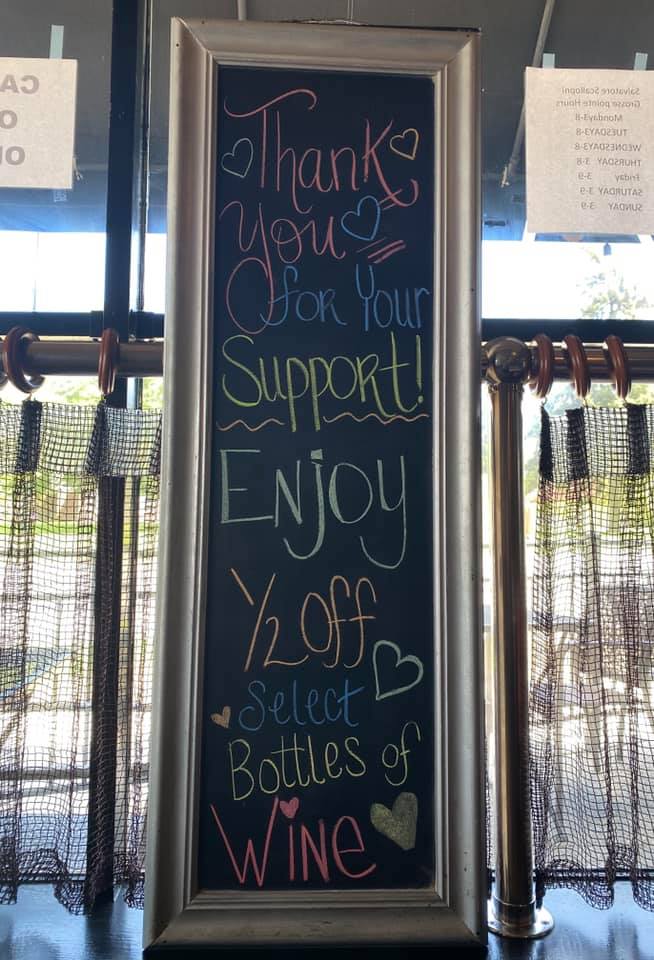 Thank
You
for Your
Support!
Enjoy
1/2 Off
Select
Bottles of
Wine
CA
O
Salvatore Scallopni
Grosse pointe Hours
Monday3-8
TUESDAY3-8
WEDNESDAY3-8
THURSDAY 3-8
Friday 3-9
SATURDAY 3-9
SUNDAY 3-9